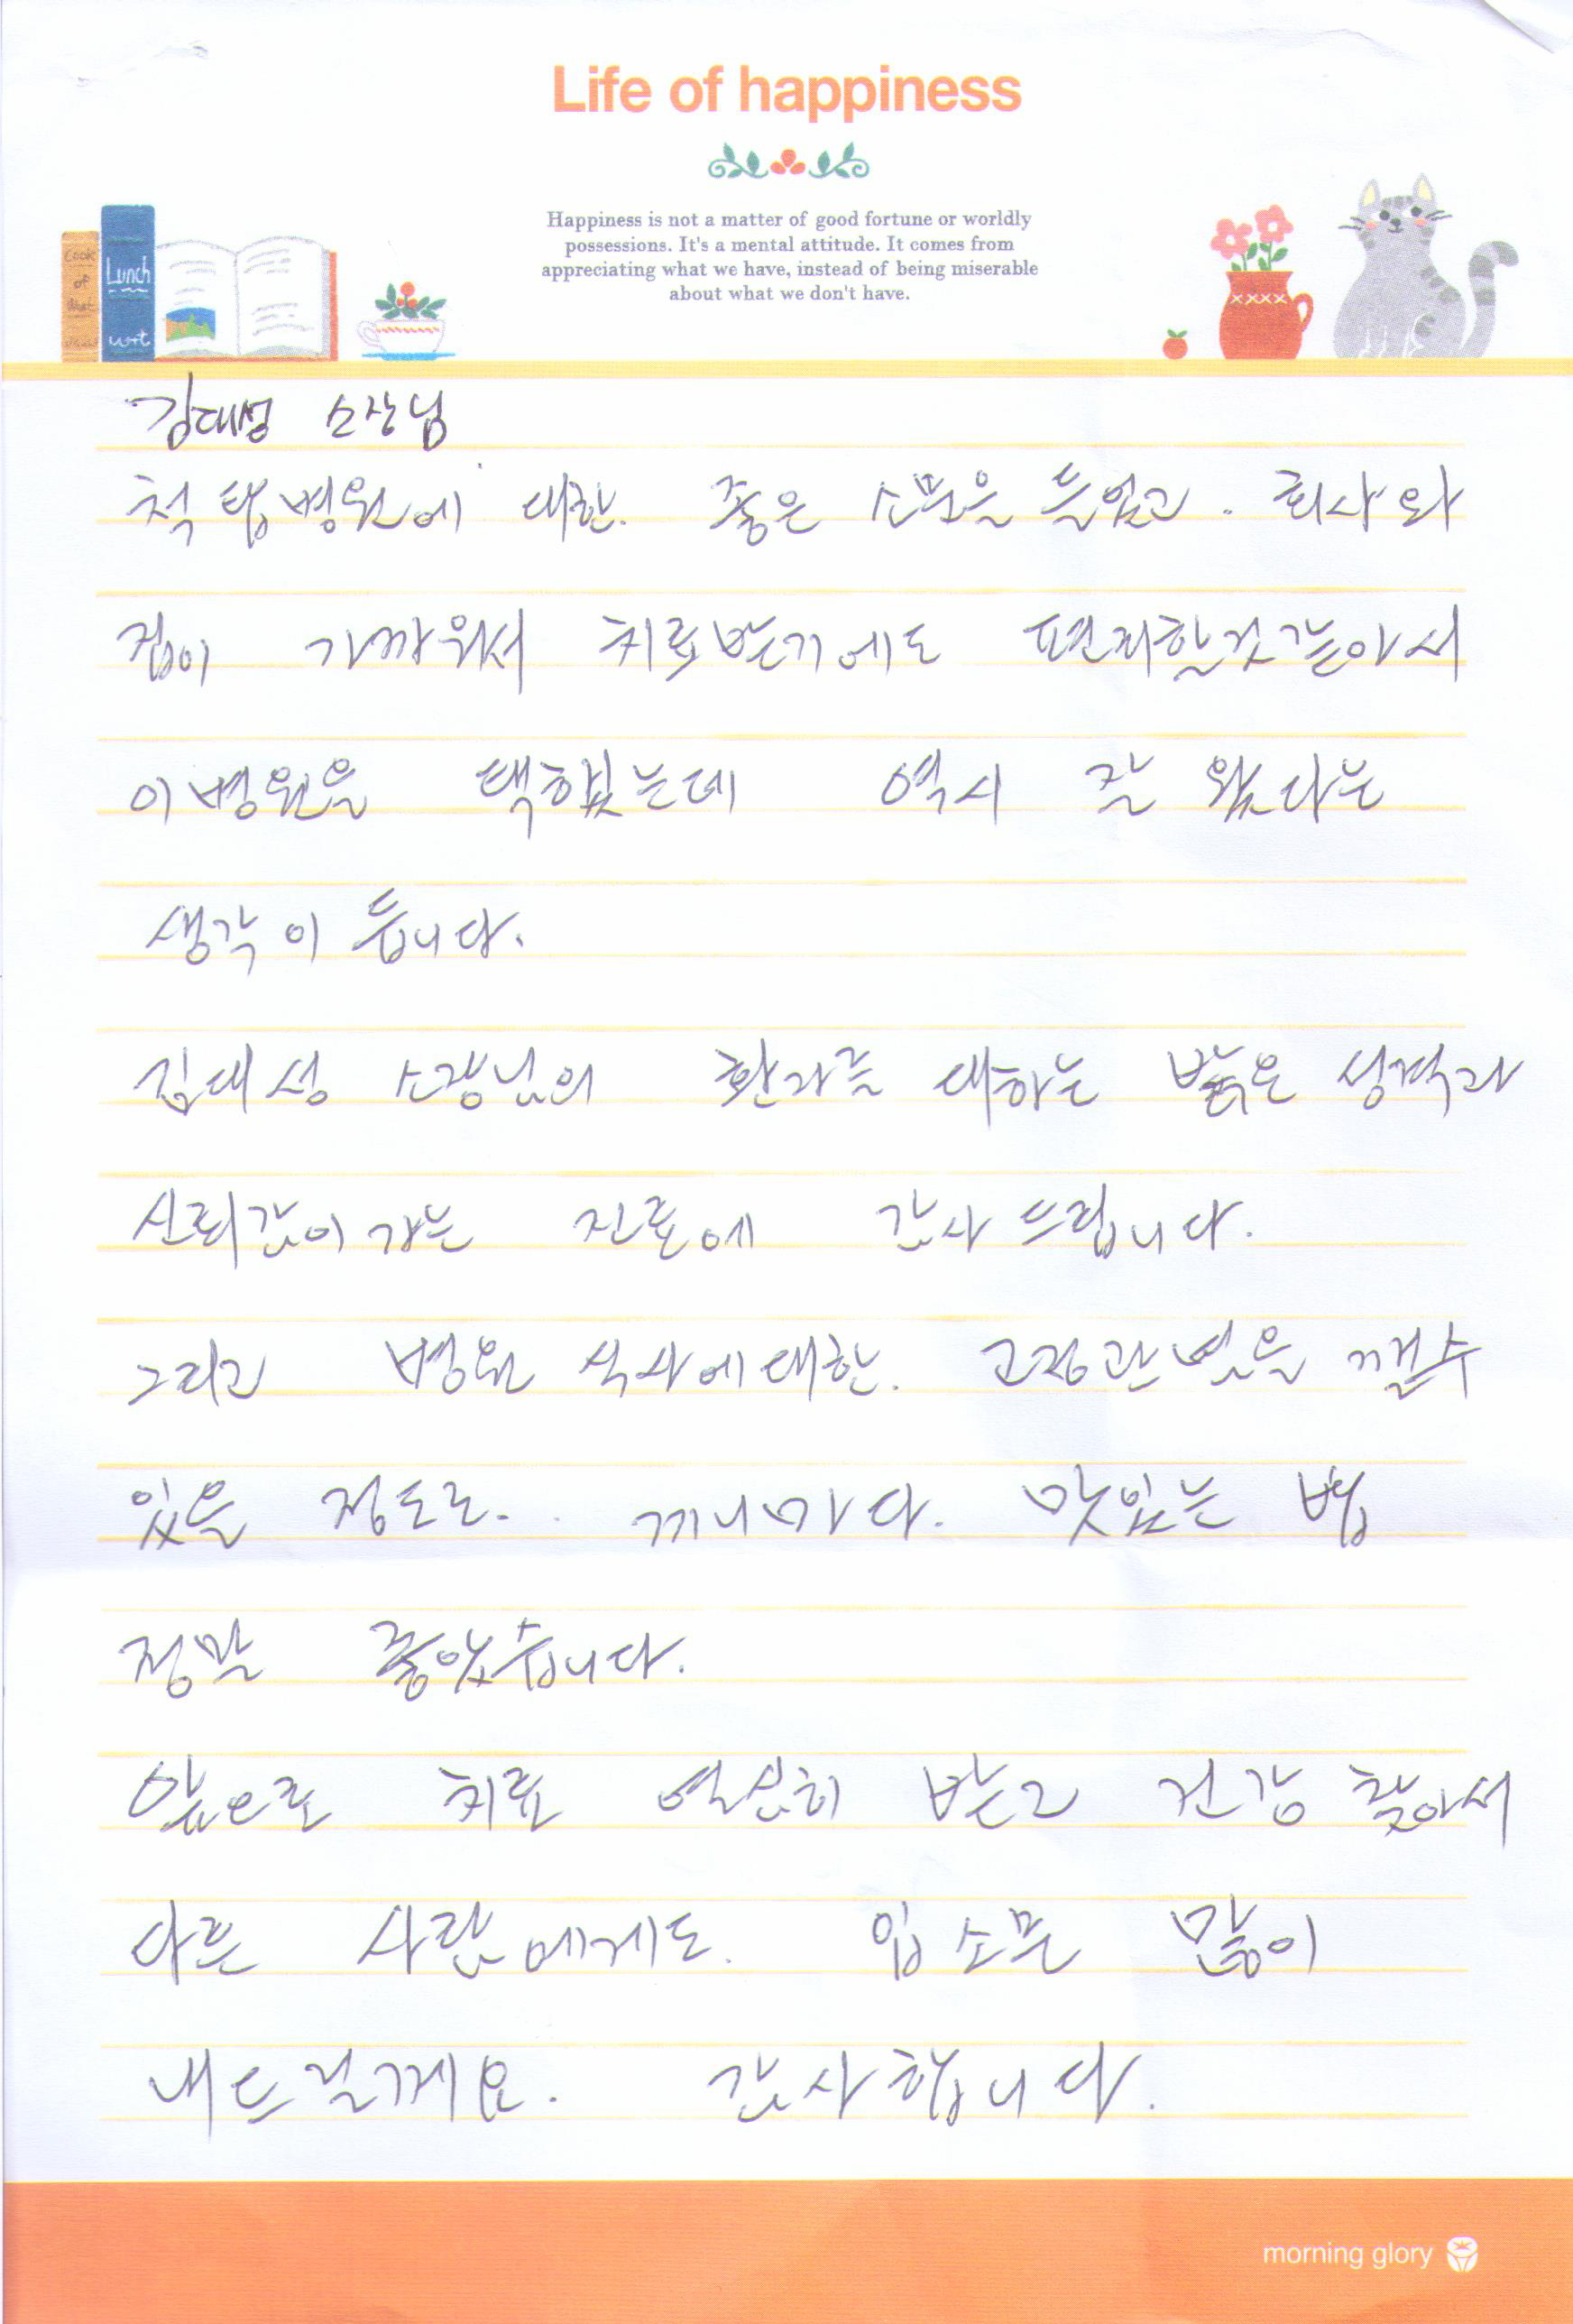 Life of happiness
Happiness is not a matter of good fortune or worldly
possessions. It's a mental attitude. It comes from
appreciating what we have, instead of being miserable
about what we don't have.
Lunch
김대성 소장님
척탑병원에 대한. 좋은 소문을 들었고. 회사와
집이 가까워서 치료받기에도 편리할것같아서
이병원을 택했는데 역시 잘 왔다는
생각이 듭니다.
김대성 소장님의 환자를 대하는 밝은 성격과
신뢰감이가는 진료에 감사드립니다.
그리고 병원 식사에대한. 고정관념을 깰수
있을 정도로.. 끼니마다. 맛있는 밥
정말 좋았습니다.
앞으로 치료 열심히 받고 건강 찾아서
다른 사람에게도. 입소문 많이
내드릴께요. 감사합니다.
morning glory